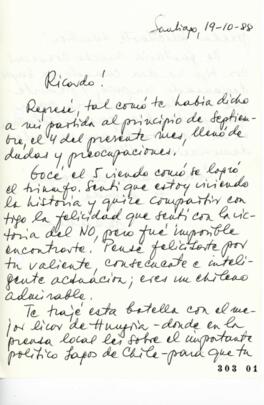 Santiago, 19-10-88
Ricardo!
Regresé, tal como te había dicho
a mi partida al principio de septiem-
bre, el 4 del presente mes, lleno de
dudas y preocupaciones.
Gocé el 5 viendo como se logró
el triunfo. Sentí que estoy viviendo
la historia y quise compartir con-
tigo la felicidad que sentí con la vic-
toria del NO, pero fue imposible
encontrarte. Pensé felicitarte por
tu valiente, consecuente e inteli-
gente actuación; eres un chileno
admirable.
Te traje esta botella con el me-
jor licor de Hungría - donde en la
prensa local leí sobre el importante
político Lagos de Chile - para que tu
303 01